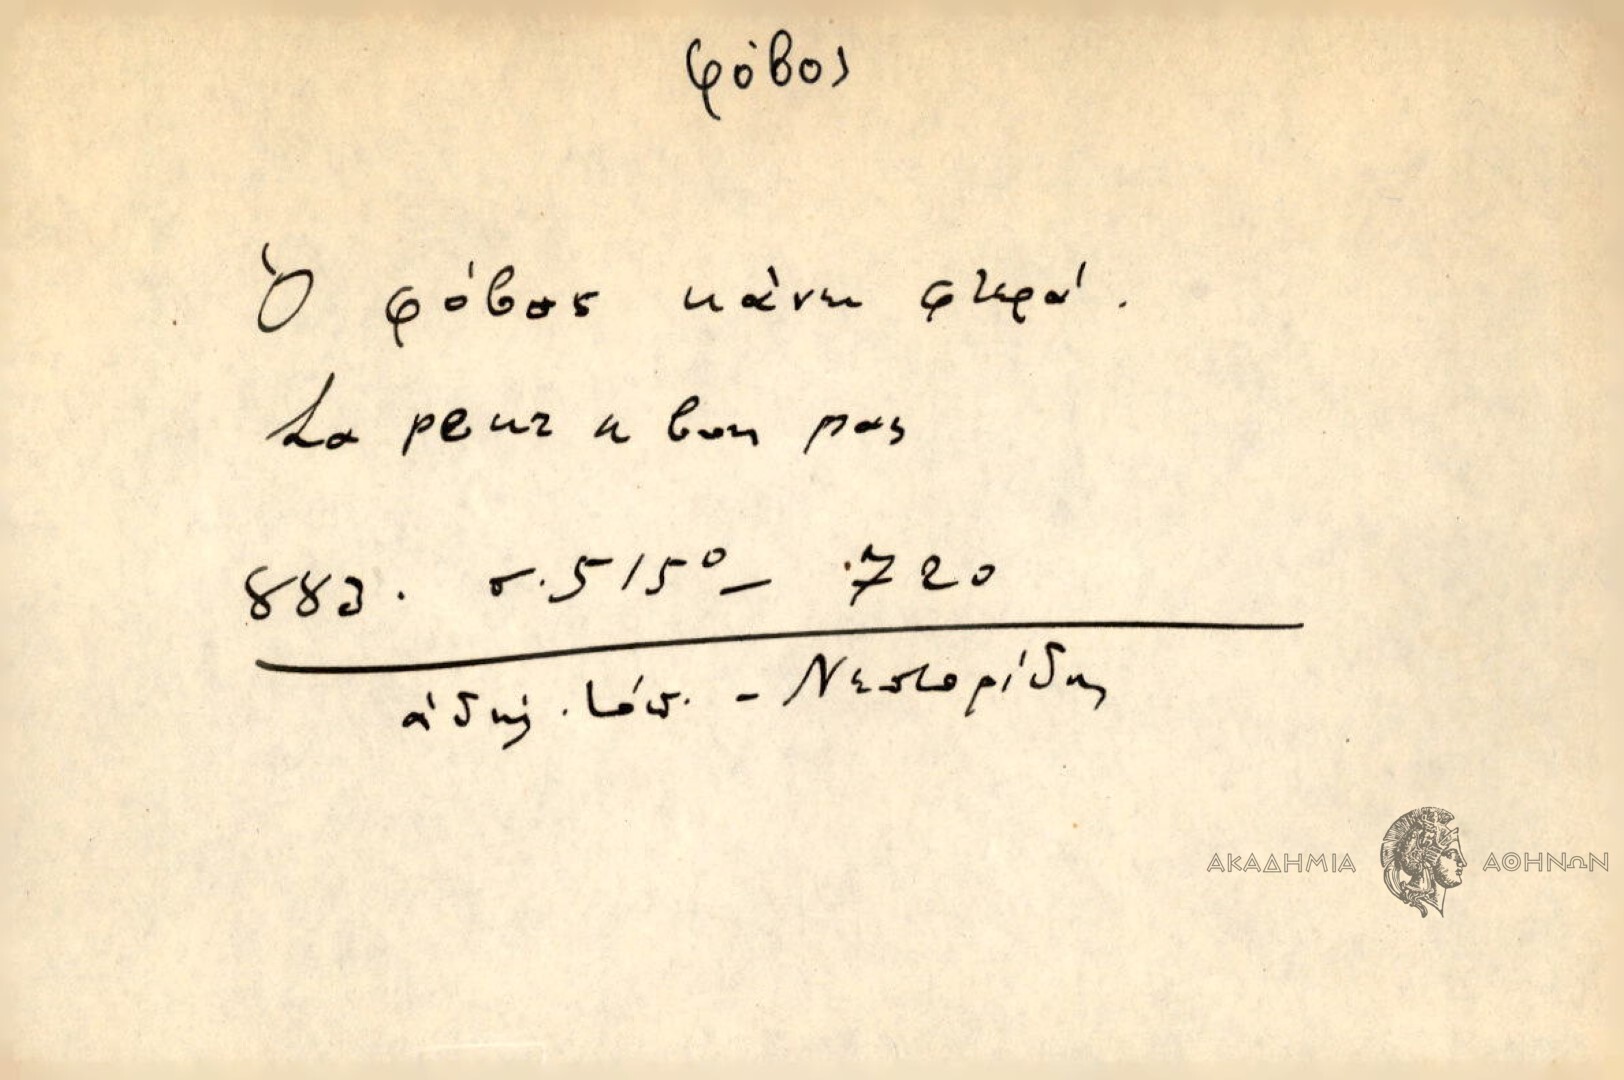 φόβος
Ὁ φόβος κάνει φτερά.
La peur a bon pas
883. σ. 515º- 720
ἀδήλ. τόπ. - Νεστορίδης
ΑΚΑΔΗΜΙΑ ΑΘΗΝΩΝ